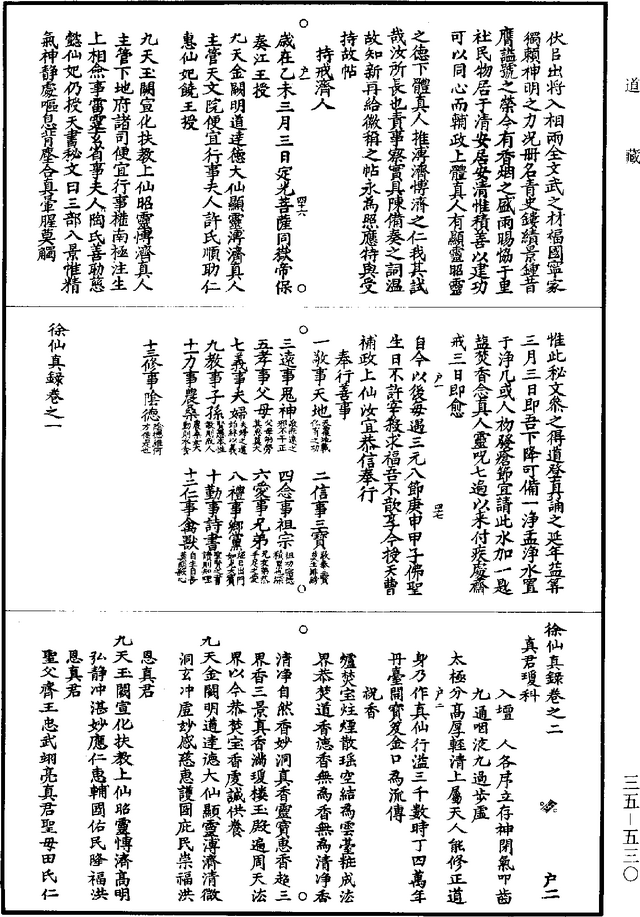 道藏
伏呂出將入相雨全文武之材福國寧家
獨賴神明之力况册名青史鏤績景鍾昔
膺謚號之榮今有香烟之盛雨暘恊于里
社民物居于清安居安清惟積善以建功
可以同心而輔政上體真人有顯靈昭靈
之德下體真人推溥濟慱濟之仁我其試
哉汝所長也責事察實具陳備奏之詞温
故知新再給徽稱之帖永為照應特與受
持故帖
持戒濟人
户一
四六
歲在乙未三月三日定光菩薩同嶽帝保
奏江王授
九天金闕明道達德大仙顯靈溥濟真人
主管天文院便宜行事夫人許氏順助仁
惠仙妃饒王授
九天玉闕宣化扶教上仙昭靈慱濟真人
主管下地府諸司便宜行事權南極注生
上相無事雷霆省事夫人陶氏善助慈
懿仙妃仍授天書秘文曰三部八景惟精
氣神靜處嘔息背塵合真葷腥莫觸
惟此秘文叅之得道登真誦之延年益筭
三月三日即吾下降可備一净盂净水置
于净几或人物發瘡節宜請此水加一匙
鹽焚香念真人靈呪七遍以来付疾處齋
戒三日即愈
户一
四七
自今以後每遇三元八節庚申甲子佛聖
生日不許宰殺求福吾不歆享今授天曹
補政上仙汝宜恭信奉行
奉行善事
一敬事天地
二信事三寶
三遠事鬼神
四念事祖宗
五孝事父母
六愛事兄弟
七義事夫婦
八禮事鄉黨
九教事子孫
十勤事詩書
十一力事農桑
十二仁事禽獸
十三修事陰德
徐仙真錄卷之一
徐仙真錄卷之二
户二
真君瓊科
入壇 人各序立存神閉氣叩齒
九通咽液九過步虛
太極分髙厚輕清上屬天人能修正道
身乃作真仙行滿三千數時丁四萬年
丹臺開寶笈金口為流傳
祝香
爐焚宝炷煙散瑶空結為雲臺粧成法
界恭焚道香德香無為香無為清净香
清净自然香妙洞真香靈寶惠香超三
界香三景真香滿瓊楼玉殿遍周天法
界以今恭焚宝香虔誠供養
九天金闕明道達德大仙顯靈溥濟清微
洞玄冲虛妙感慈惠護國庇民崇福洪
恩真君
九天玉闕宣化扶教上仙昭靈慱濟高明
弘静冲湛妙應仁惠輔國佑民隆福洪
恩真君
聖父齊王忠武翊亮真君聖母田氏仁
三五—五三〇